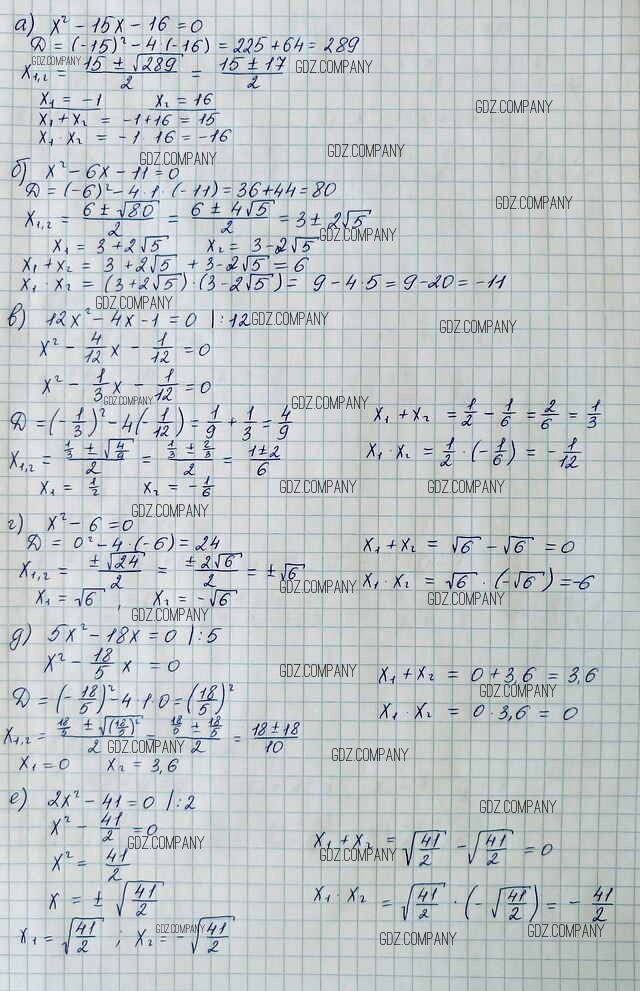 а) x² − 15x − 16 = 0
D = (−15)² − 4·(−16) = 225 + 64 = 289
x₁,₂ = (15 ± √289)/2 = (15 ± 17)/2
GDZ.COMPANY GDZ.COMPANY
x₁ = −1 x₂ = 16
GDZ.COMPANY
x₁ + x₂ = −1 + 16 = 15
x₁ · x₂ = −1 · 16 = −16
GDZ.COMPANY GDZ.COMPANY
б) x² − 6x − 11 = 0
D = (−6)² − 4·1·(−11) = 36 + 44 = 80
GDZ.COMPANY
x₁,₂ = (6 ± √80)/2 = (6 ± 4√5)/2 = 3 ± 2√5
GDZ.COMPANY
x₁ = 3 + 2√5 x₂ = 3 − 2√5
x₁ + x₂ = 3 + 2√5 + 3 − 2√5 = 6
x₁ · x₂ = (3 + 2√5)·(3 − 2√5) = 9 − 4·5 = 9 − 20 = −11
GDZ.COMPANY
в) 12x² − 4x − 1 = 0 |:12
GDZ.COMPANY GDZ.COMPANY
x² − 4/12 x − 1/12 = 0
x² − 1/3 x − 1/12 = 0
GDZ.COMPANY GDZ.COMPANY
D = (−1/3)² − 4(−1/12) = 1/9 + 1/3 = 4/9
x₁ + x₂ = 1/2 − 1/6 = 2/6 = 1/3
x₁,₂ = (1/3 ± √(4/9))/2 = (1/3 ± 2/3)/2 = (1 ± 2)/6
x₁ · x₂ = 1/2 · (−1/6) = −1/12
x₁ = 1/2 x₂ = −1/6
GDZ.COMPANY GDZ.COMPANY
GDZ.COMPANY
г) x² − 6 = 0
D = 0² − 4·(−6) = 24
x₁ + x₂ = √6 − √6 = 0
x₁,₂ = ±√24/2 = ±2√6/2 = ±√6
x₁ · x₂ = √6 · (−√6) = −6
GDZ.COMPANY GDZ.COMPANY
x₁ = √6, x₂ = −√6
GDZ.COMPANY
д) 5x² − 18x = 0 |:5
x² − 18/5 x = 0
GDZ.COMPANY
x₁ + x₂ = 0 + 3,6 = 3,6
GDZ.COMPANY
D = (−18/5)² − 4·1·0 = (18/5)²
x₁ · x₂ = 0 · 3,6 = 0
x₁,₂ = (18/5 ± √(18/5)²)/2 = (18/5 ± 18/5)/2 = (18 ± 18)/10
GDZ.COMPANY GDZ.COMPANY
x₁ = 0 x₂ = 3,6
е) 2x² − 41 = 0 |:2
GDZ.COMPANY
x² − 41/2 = 0
GDZ.COMPANY
x₁ + x₂ = √(41/2) − √(41/2) = 0
GDZ.COMPANY
x² = 41/2
x = ± √(41/2)
x₁ · x₂ = √(41/2) · (−√(41/2)) = −41/2
x₁ = √(41/2) ; x₂ = −√(41/2)
GDZ.COMPANY GDZ.COMPANY GDZ.COMPANY